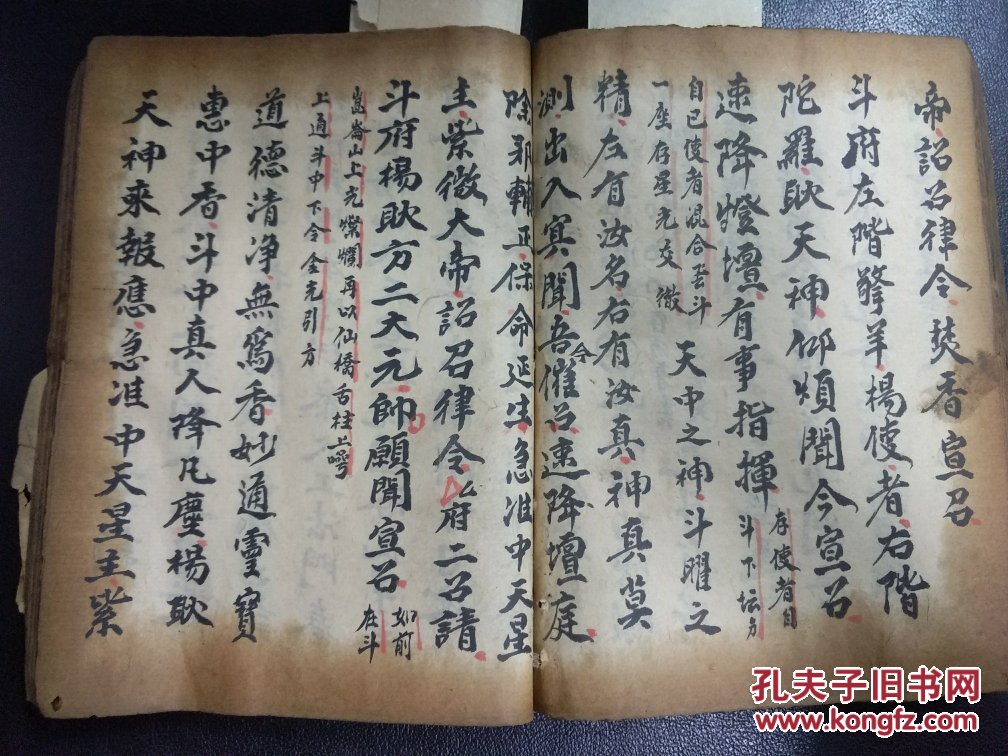 帝詔召律令焚香宣召
斗府左階擎羊楊使者右階
陀羅耿天神仰煩聞今宣召
速降燈壇有事指揮
存使者自
斗下坛方
自已使者混合至斗
一座存星光交徹
天中之神斗曜之
精左有汝名右有汝真神真莫
測出入冥聞吾今催召速降壇庭
除邪輔正保命延生急准中天星
主紫微大帝詔召律令
府二召請
斗府楊耿方二大元帥願聞宣召
如前
在斗
崑崙山上光燦爛再以仙橋舌柱上腭
上通斗中下令金光引方
道德清净無爲香妙通靈寶
惠中香斗中真人降凡塵楊耿
天神來報應急准中天星主紫
孔夫子旧书网
www.kongfz.com